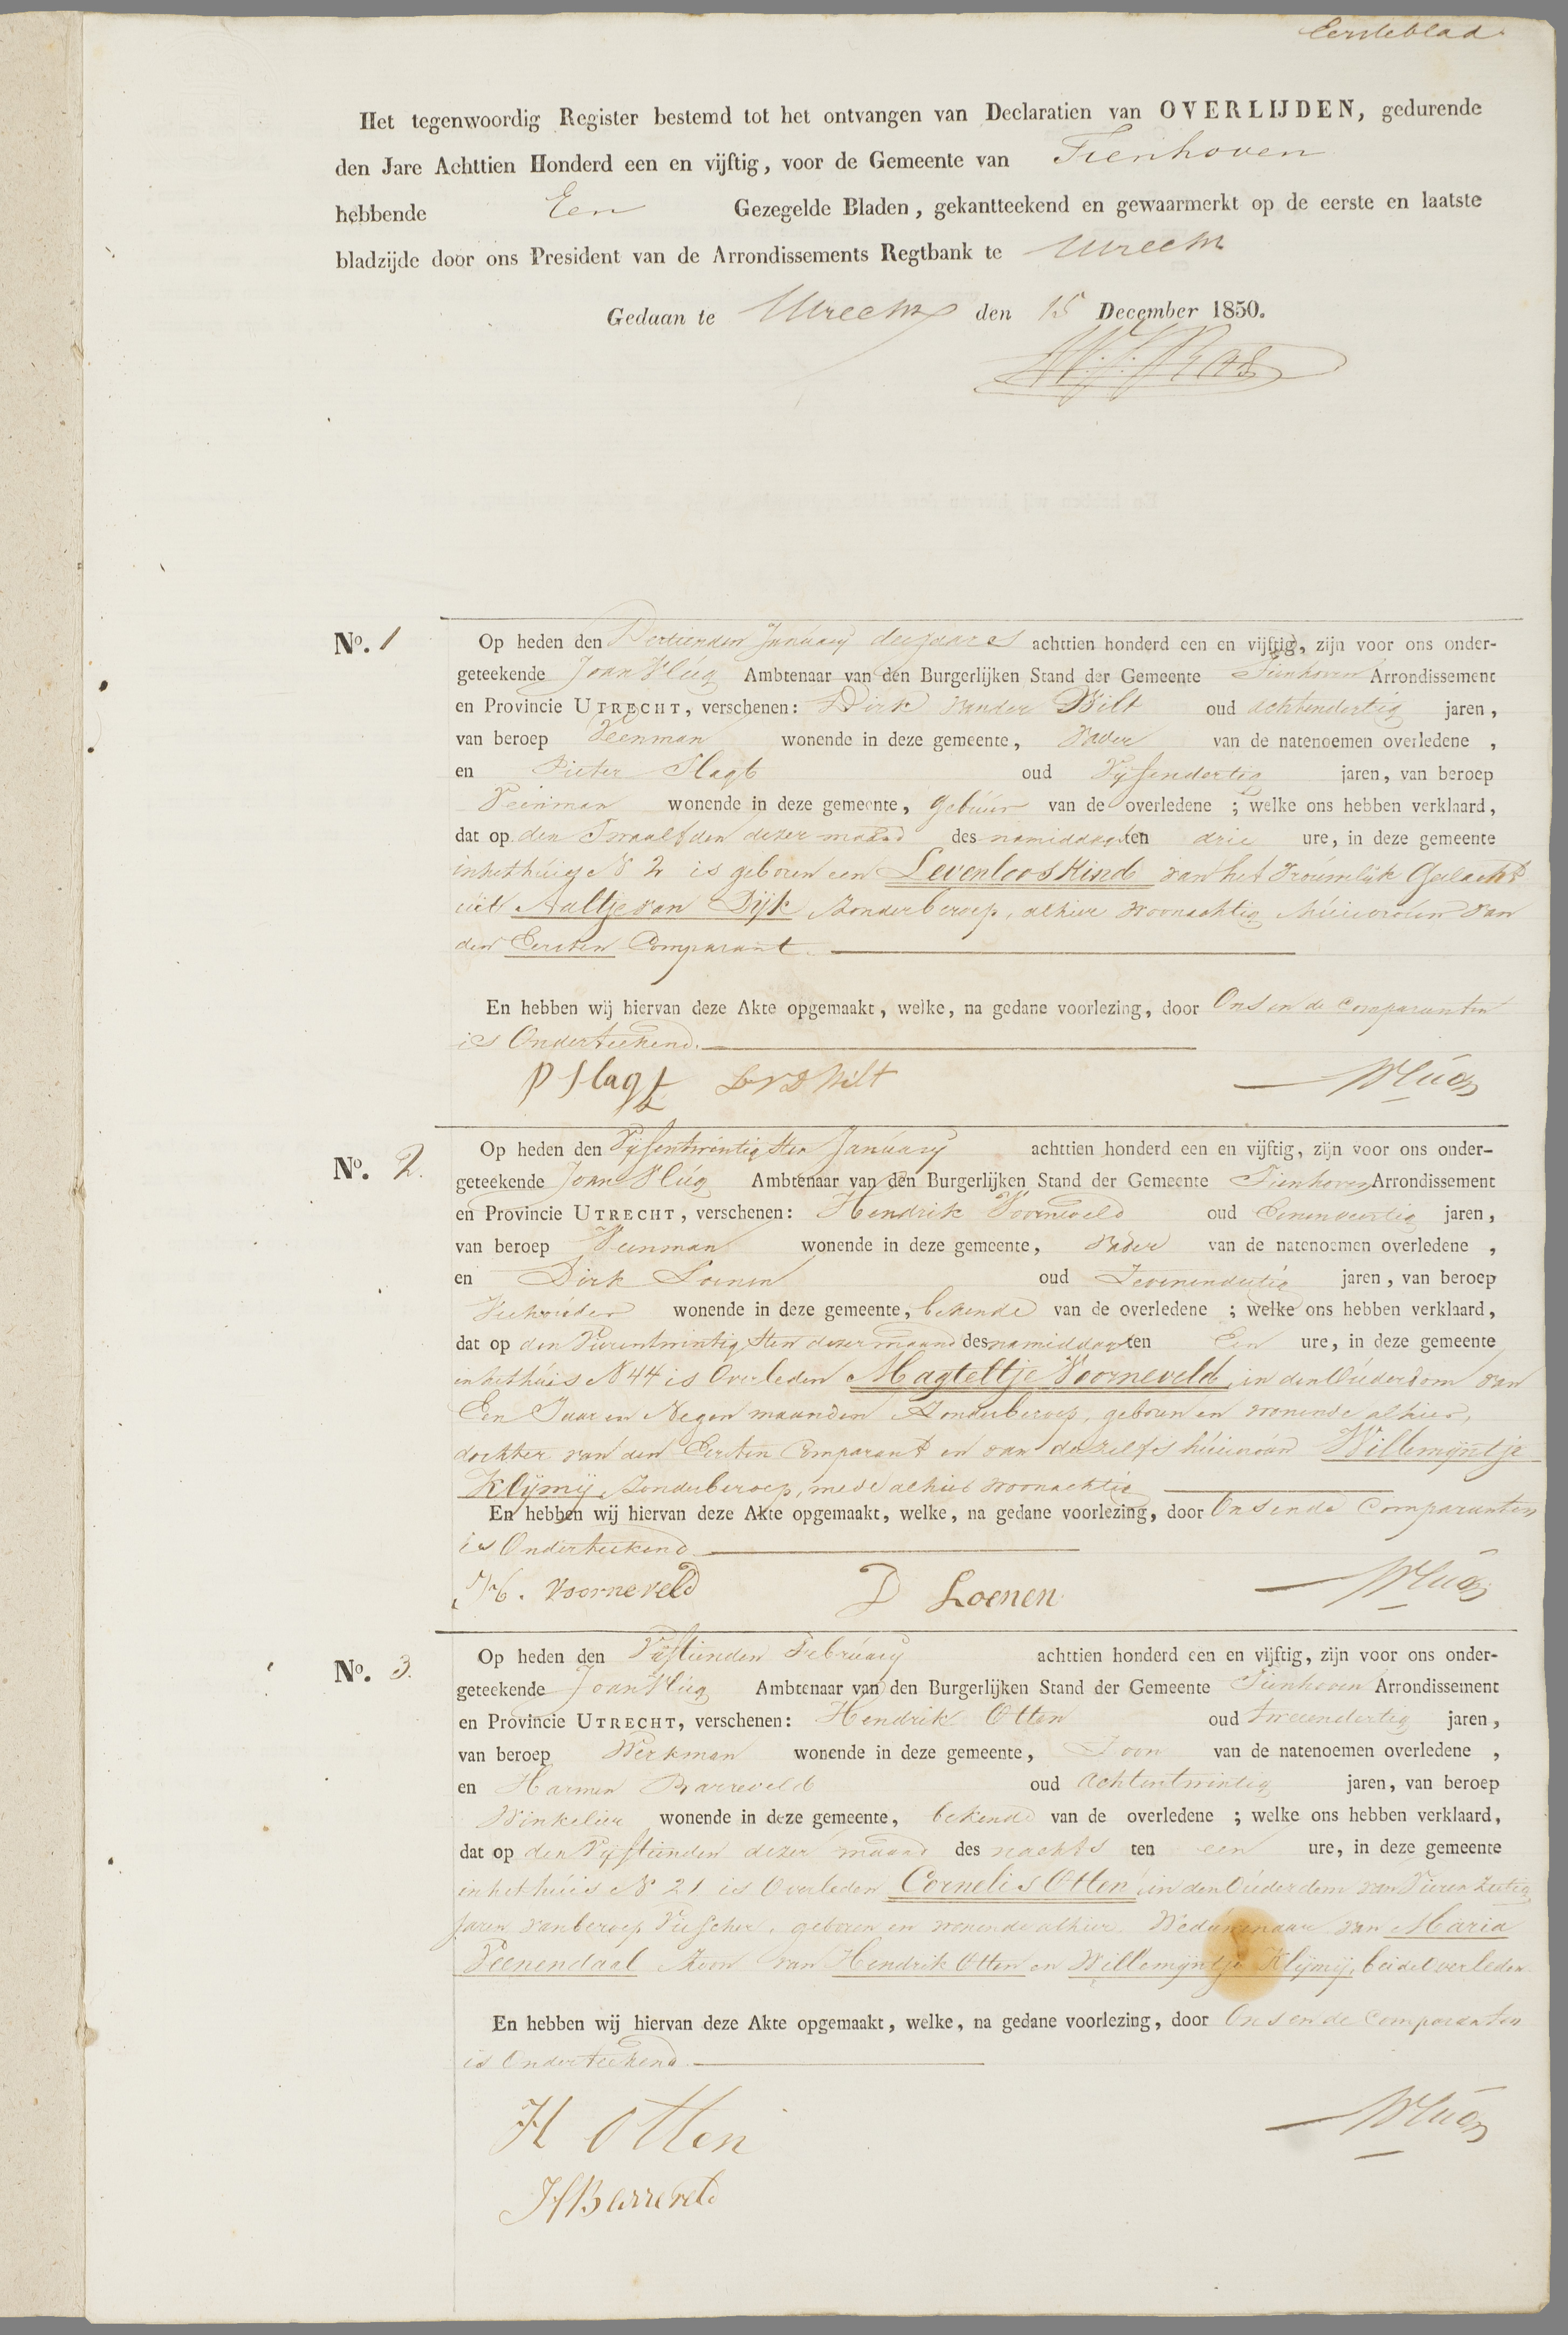 Eersteblad
Het tegenwoordig Register bestemd tot het ontvangen van Declaratien van OVERLIJDEN, gedurende
den Jare Achttien Honderd een en vijftig, voor de Gemeente van Tienhoven
hebbende Een Gezegelde Bladen, gekantteekend en gewaarmerkt op de eerste en laatste
bladzijde door ons President van de Arrondissements Regtbank te Utrecht
Gedaan te Utrecht den 15 December 1850.
No. 1
Op heden den Dertienden January dezjaars achttien honderd een en vijftig, zijn voor ons onder-
geteekende Joan Vlúg Ambtenaar van den Burgerlijken Stand der Gemeente Tienhoven Arrondissement
en Provincie UTRECHT, verschenen: Dirk vander Wilt oud achtendertig jaren,
van beroep Veenman wonende in deze gemeente, Vader van de natenoemen overledene ,
en Pieter Slagt oud Vijfendertig jaren, van beroep
Veenman wonende in deze gemeente, gebúúr van de overledene ; welke ons hebben verklaard,
dat op den Twaalfden dezer maand des namiddags ten drie ure, in deze gemeente
in het húis N 2 is geboren een Levenloos Kind van het Vroúwelijk Geslacht
úit Aaltje van Dijk Zonder beroep, alhier woonachtig húisvroúw van
den Eersten Comparant.
En hebben wij hiervan deze Akte opgemaakt, welke, na gedane voorlezing, door Ons en de comparanten
is Onderteekend.
P Slagt D V D Wilt Vlúg
No. 2.
Op heden den Vijfentwintigsten January achttien honderd een en vijftig, zijn voor ons onder-
geteekende Joan Vlúg Ambtenaar van den Burgerlijken Stand der Gemeente Tienhoven Arrondissement
en Provincie UTRECHT, verschenen: Hendrik Voorneveld oud Eenenveertig jaren,
van beroep Veenman wonende in deze gemeente, Vader van de natenoemen overledene ,
en Dirk Loenen oud Zevenendertig jaren, van beroep
Veehoúder wonende in deze gemeente, bekende van de overledene ; welke ons hebben verklaard,
dat op den Vierentwintigsten dezer maand des namiddags ten Een ure, in deze gemeente
in het húis N 44 is Overleden Magteltje Voorneveld, in den Oúderdom van
Een Jaar en Negen maanden Zonder beroep, geboren en wonende alhier,
dochter van den Eersten Comparant en van deszelfs húisvroúw Willemijntje
Klijmij, Zonder beroep, mede alhier woonachtig
En hebben wij hiervan deze Akte opgemaakt, welke, na gedane voorlezing, door Ons en de Comparanten
is Onderteekend
H. Voorneveld D Loenen Vlúg
No. 3.
Op heden den Vijftienden Februáry achttien honderd een en vijftig, zijn voor ons onder-
geteekende Joan Vlúg Ambtenaar van den Burgerlijken Stand der Gemeente Tienhoven Arrondissement
en Provincie UTRECHT, verschenen: Hendrik Otten oud tweeendertig jaren,
van beroep Werkman wonende in deze gemeente, Zoon van de natenoemen overledene ,
en Harmen Barreveld oud Achtentwintig jaren, van beroep
Winkelier wonende in deze gemeente, bekende van de overledene ; welke ons hebben verklaard,
dat op den Vijftienden dezer maand des nachts ten een ure, in deze gemeente
in het húis N 21 is Overleden Cornelis Otten, in den Oúderdom van Vieren Zestig
Jaren van beroep Visscher, geboren en wonende alhier, Wedúwenaar van Maria
Veenendaal Zoon van Hendrik Otten en Willemijntje Klijmij, beide Overleden
En hebben wij hiervan deze Akte opgemaakt, welke, na gedane voorlezing, door Ons en de Comparanten
is Onderteekend
H Otten Vlúg
H Barreveld